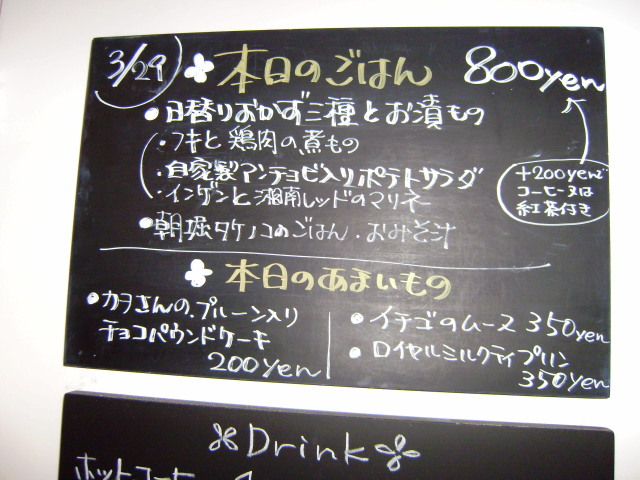 3/29 本日のごはん 800yen
・日替りおかず三種とお漬もの
・フキと鶏肉の煮もの
・自家製アンチョビ入りポテトサラダ
・インゲンと湘南レッドのマリネー
・朝堀タケノコのごはん・おみそ汁
+200yen
コーヒー又は
紅茶付き
本日のあまいもの
・カヨさんの、プルーン入り
チョコパウンドケーキ
200yen
・イチゴのムース 350yen
・ロイヤルミルクティプリン
350yen
Drink
ホットコーヒー